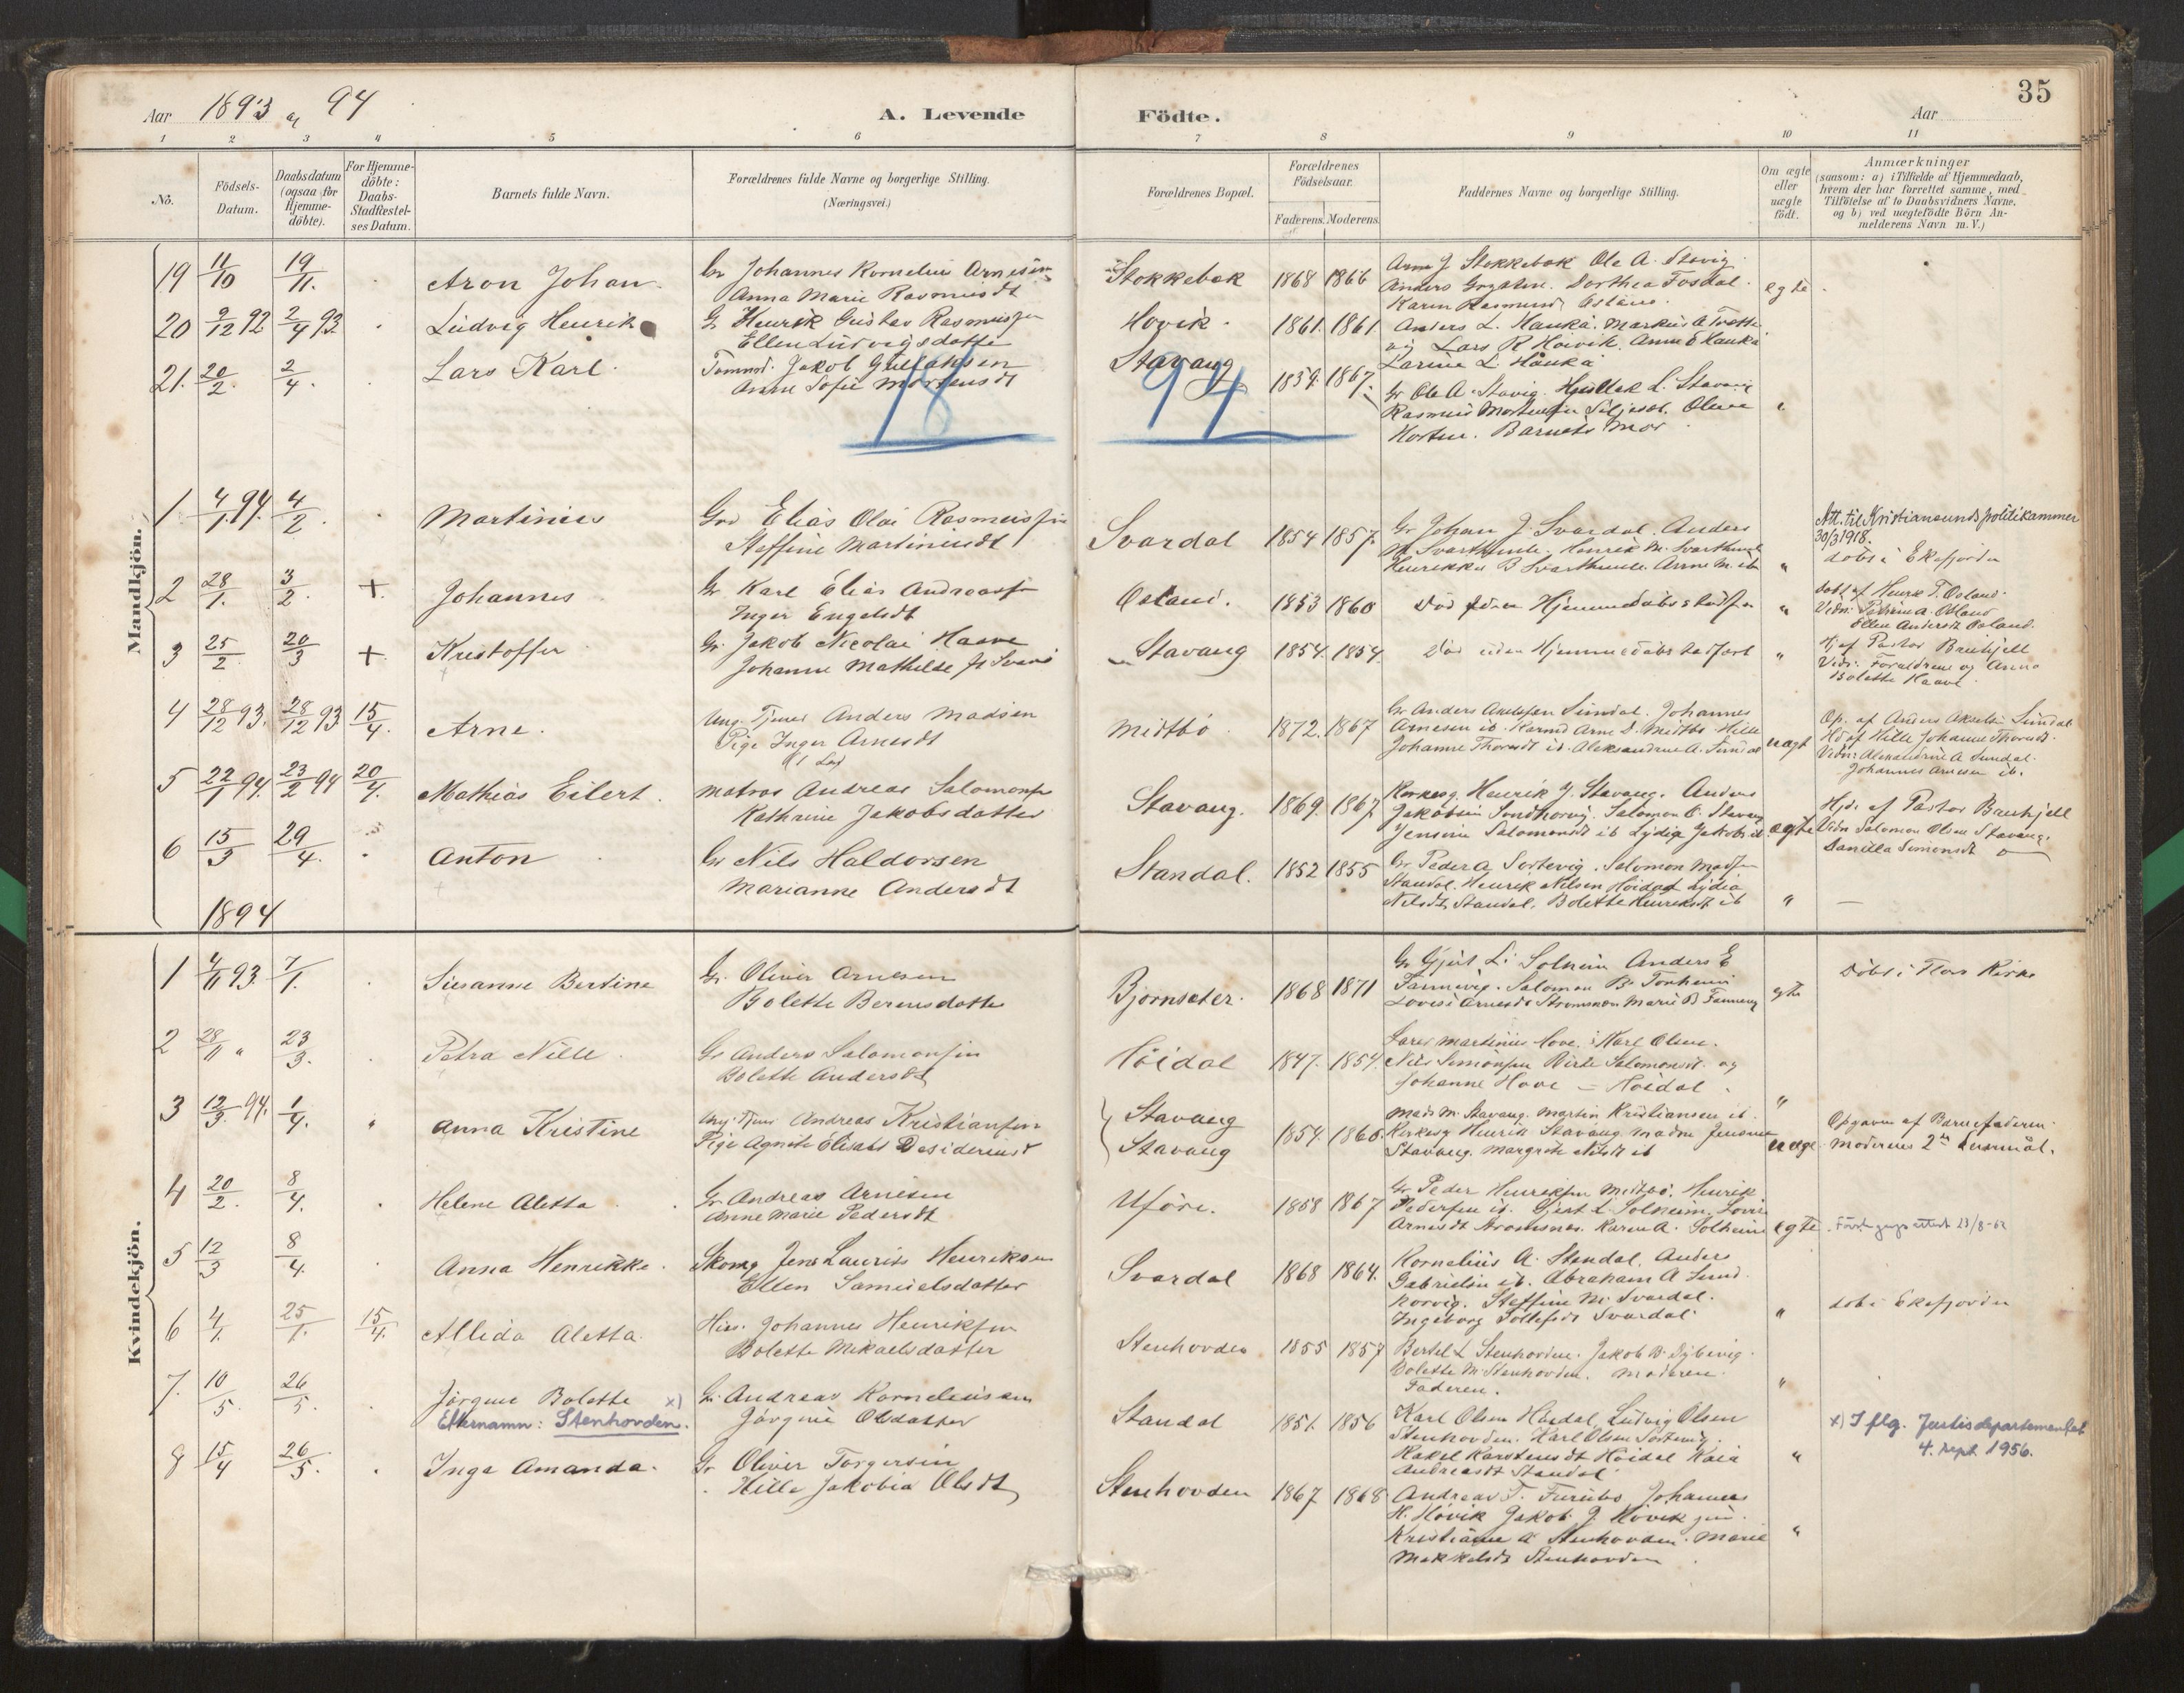 35
Aar 1893 og 94
A. Levende Födte.
Aar
1 2 3 4 5 6 7 8 9 10 11
No.
Födsels-
Datum.
Daabsdatum
(ogsaa for
Hjemme-
döbte).
For Hjemme-
döbte:
Daabs-
Stadfæstel-
ses Datum.
Barnets fulde Navn.
Forældrenes fulde Navne og borgerlige Stilling.
(Næringsvei.)
Forældrenes Bopæl.
Forældrenes
Födselsaar.
Faderens. Moderens.
Faddernes Navne og borgerlige Stilling.
Om ægte
eller
uægte
födt.
Anmærkninger
(saasom: a) i Tilfælde af Hjemmedaab,
hvem der har forrettet samme, med
Tilföielse af to Daabsvidners Navne.
og b) ved uægtefödte Börn An-
melderens Navn m. V.)
Mandkjön.
19 11/10 19/11. Aron Johan.
Gr Johannes Kornelius Arnesen
Anna Marie Rasmusdt
Stokkebek 1868 1866
Arne J Stokkebøk Ole A. Stavig
Anders Dorthea Fosdal
Karin Rasmusd Osland
egte
20 9/12 92 2/4 93 Ludvig Henrik
G Henrik Gustav Rasmussen
Ellen Ludvigsdatter
Hovik. 1861. 1861.
Anders L. Hauka. Markus A
og Lars R Hovik. Anne E Hauka
Karine L Hauka
21. 20/2. 2/4. Lars Karl.
Tommd. Jakob Gullaksen
Anne Sofie Mortensdt
Stavang 1859. 1867.
Gr Ole A. Stavig. Gullak L. Stavang
Rasmus Mortensen Oline
Barnets Mor
18 94
1 4/1. 94. 4/2. Martinius
Grd Elias Olai Rasmussen
Steffine Martinusdt
Svardal 1854 1857.
Gr Johan J. Svardal. Anders
M Svarthumle. Henrik M. Svarthumle
Henrikke B Svarthumle. Anne M. ib
"
Att. til Kristiansunds politikammer
30/3 1918.
döbt i Ekefjorden
2 28/1. 3/2. + Johannes
Gr Karl Elias Andreassen
Inger Engelsdt
Osland. 1853 1860
Död uden Hjemmedaabsstadf
"
döbt af Henrik T. Osland.
Vidn: Petrine A. Osland
Ellen Andersdt Osland.
3 25/2. 20/3 + Kristoffer
Gr. Jakob Nicolai Haave
Johanne Mathilde
Stavang 1854. 1854.
Död uden Hjemmedaabs stadfæst
"
Hj af Pastor Brunkjell
Vidn: Forældrene og Anna
Bolette Haave
4 28/12 93. 28/12 93 15/4. Arne.
Ung. Tjener Anders Madsen
Pige Inger Arnesdt
Midtbö 1872. 1867
Gr Anders Akselsen Sundal. Johannes
Arnesen ib. Karmd Arne D. Midtbö Hille
Johanne Thoresdt ib. Aleksandrine A. Sundal
uegt
Op. af Anders Akselsen Sundal
Hd af Hille Johanne Thoresdt.
Vidn: Alexandrine A Sundal.
Johannes Arnesen ib.
5 22/1 94. 23/2 94 20/4. Mathias Eilert.
Matros Andreas Salomonsen
Kathrine Jakobsdatter
Stavang. 1869. 1867
Kirkesg Henrik J. Stavang. Anders
Jakobsen Salomon O. Stavang
Jensine Salomonsdt ib Lydia Jakobsdt
egte
Hjd. af Pastor Brunkjell
Vidn Salomon Olsen Stavang.
Danilla Simonsdt
6 15/3 29/4. Anton
Gr Nils Haldorsen
Marianne Andersdt
Standal. 1852 1855
Gr Peder A Sortevig. Salomon Madsen
Standal. Henrik Nilsen Höidal Lydia
Nilsdt Standal. Bolette Henriksdt ib
"
1894
Kvindekjön.
1 4/11 93. 7/1. Susanne Bertine
Gr. Oliver Arnesen
Bolette Berensdatter
Bjornseter. 1868 1871
Gr Gjert L. Solheim Anders E
Salomon B.
Lovise Arnesdt Strömsnes Marie B
egte
Döbt i Kirke
2 28/11 " 23/3. Petra Nille
Gr Anders Salomonsen
Bolette Andersdt
Höidal 1847. 1854.
Lars Martinus Hove. Karl Olsen.
Nils Simonsen Birte Salomonsdt og
Johanne Hove — Höidal.
"
3 12/3. 94. 1/4. Anna Kristine
Ung. Tjener Andreas Kristiansen
Pige Agnete Elisabet Desideriusdt
Stavang
Stavang
1854. 1866.
Mads M. Stavang. Martin Kristiansen ib.
Kirkesg Henrik Stavang madm Jensine
Stavang. Margrete Nilsdt ib
uegte
Opgaven af Barnefaderen
Moderens 2den Leiermål.
4 20/2. 8/4. Helene Aletta
Gr. Andreas Arnesen
Anne Marie Pedersdt
Uföre. 1858 1867
Gr Peder Henriksen Midtbö. Henrik
Pedersen ib. Gjert L. Solheim Lovise
Arnesdt Strömsnes. Karen A. Solheim
egte
23/8-62
5 12/3 8/4. Anna Henrikke.
Skomg Jens Laurits Henriksen
Ellen Samuelsdatter
Svardal 1868 1864.
Kornelius A. Standal. Anders
Gabrielsen ib. Abraham A
Steffine M. Svardal.
Ingeborg Tollefsdt Svardal
"
döbt i Ekefjorden
6 4/1. 25/1. 15/4. Allida Aletta.
Hus. Johannes Henriksen
Bolette Mikaelsdatter
Stenhovden 1855 1857
Bertel L Stenhovden. Jakob B.
Bolette M. Stenhovden. Moderen.
Faderen.
"
7. 10/5. 26/5. Jörgine Bolette x)
Etternamn: Stenhovden.
Gr. Andreas Korneliussen
Jörgine Olsdatter
Standal 1851. 1856
Karl Olsen Höidal, Ludvig Olsen
Stenhovden. Karl Olsen Sortevig.
Rakel Karstensdt Höidal Kaia
Andreasdt Standal
"
x) I flg. Justisdepartementet
4. sept. 1956.
8 15/4 26/5. Inga Amanda.
Gr. Oliver Torgersen
Hille Jakobia Olsdt
Stenhovden 1867 1868
Andreas T. Furubo Johannes
H. Hövik Jakob J. Hövik jun.
Kristiane A Stenhovden. Marie
Mikkelsdt Stenhovden
"